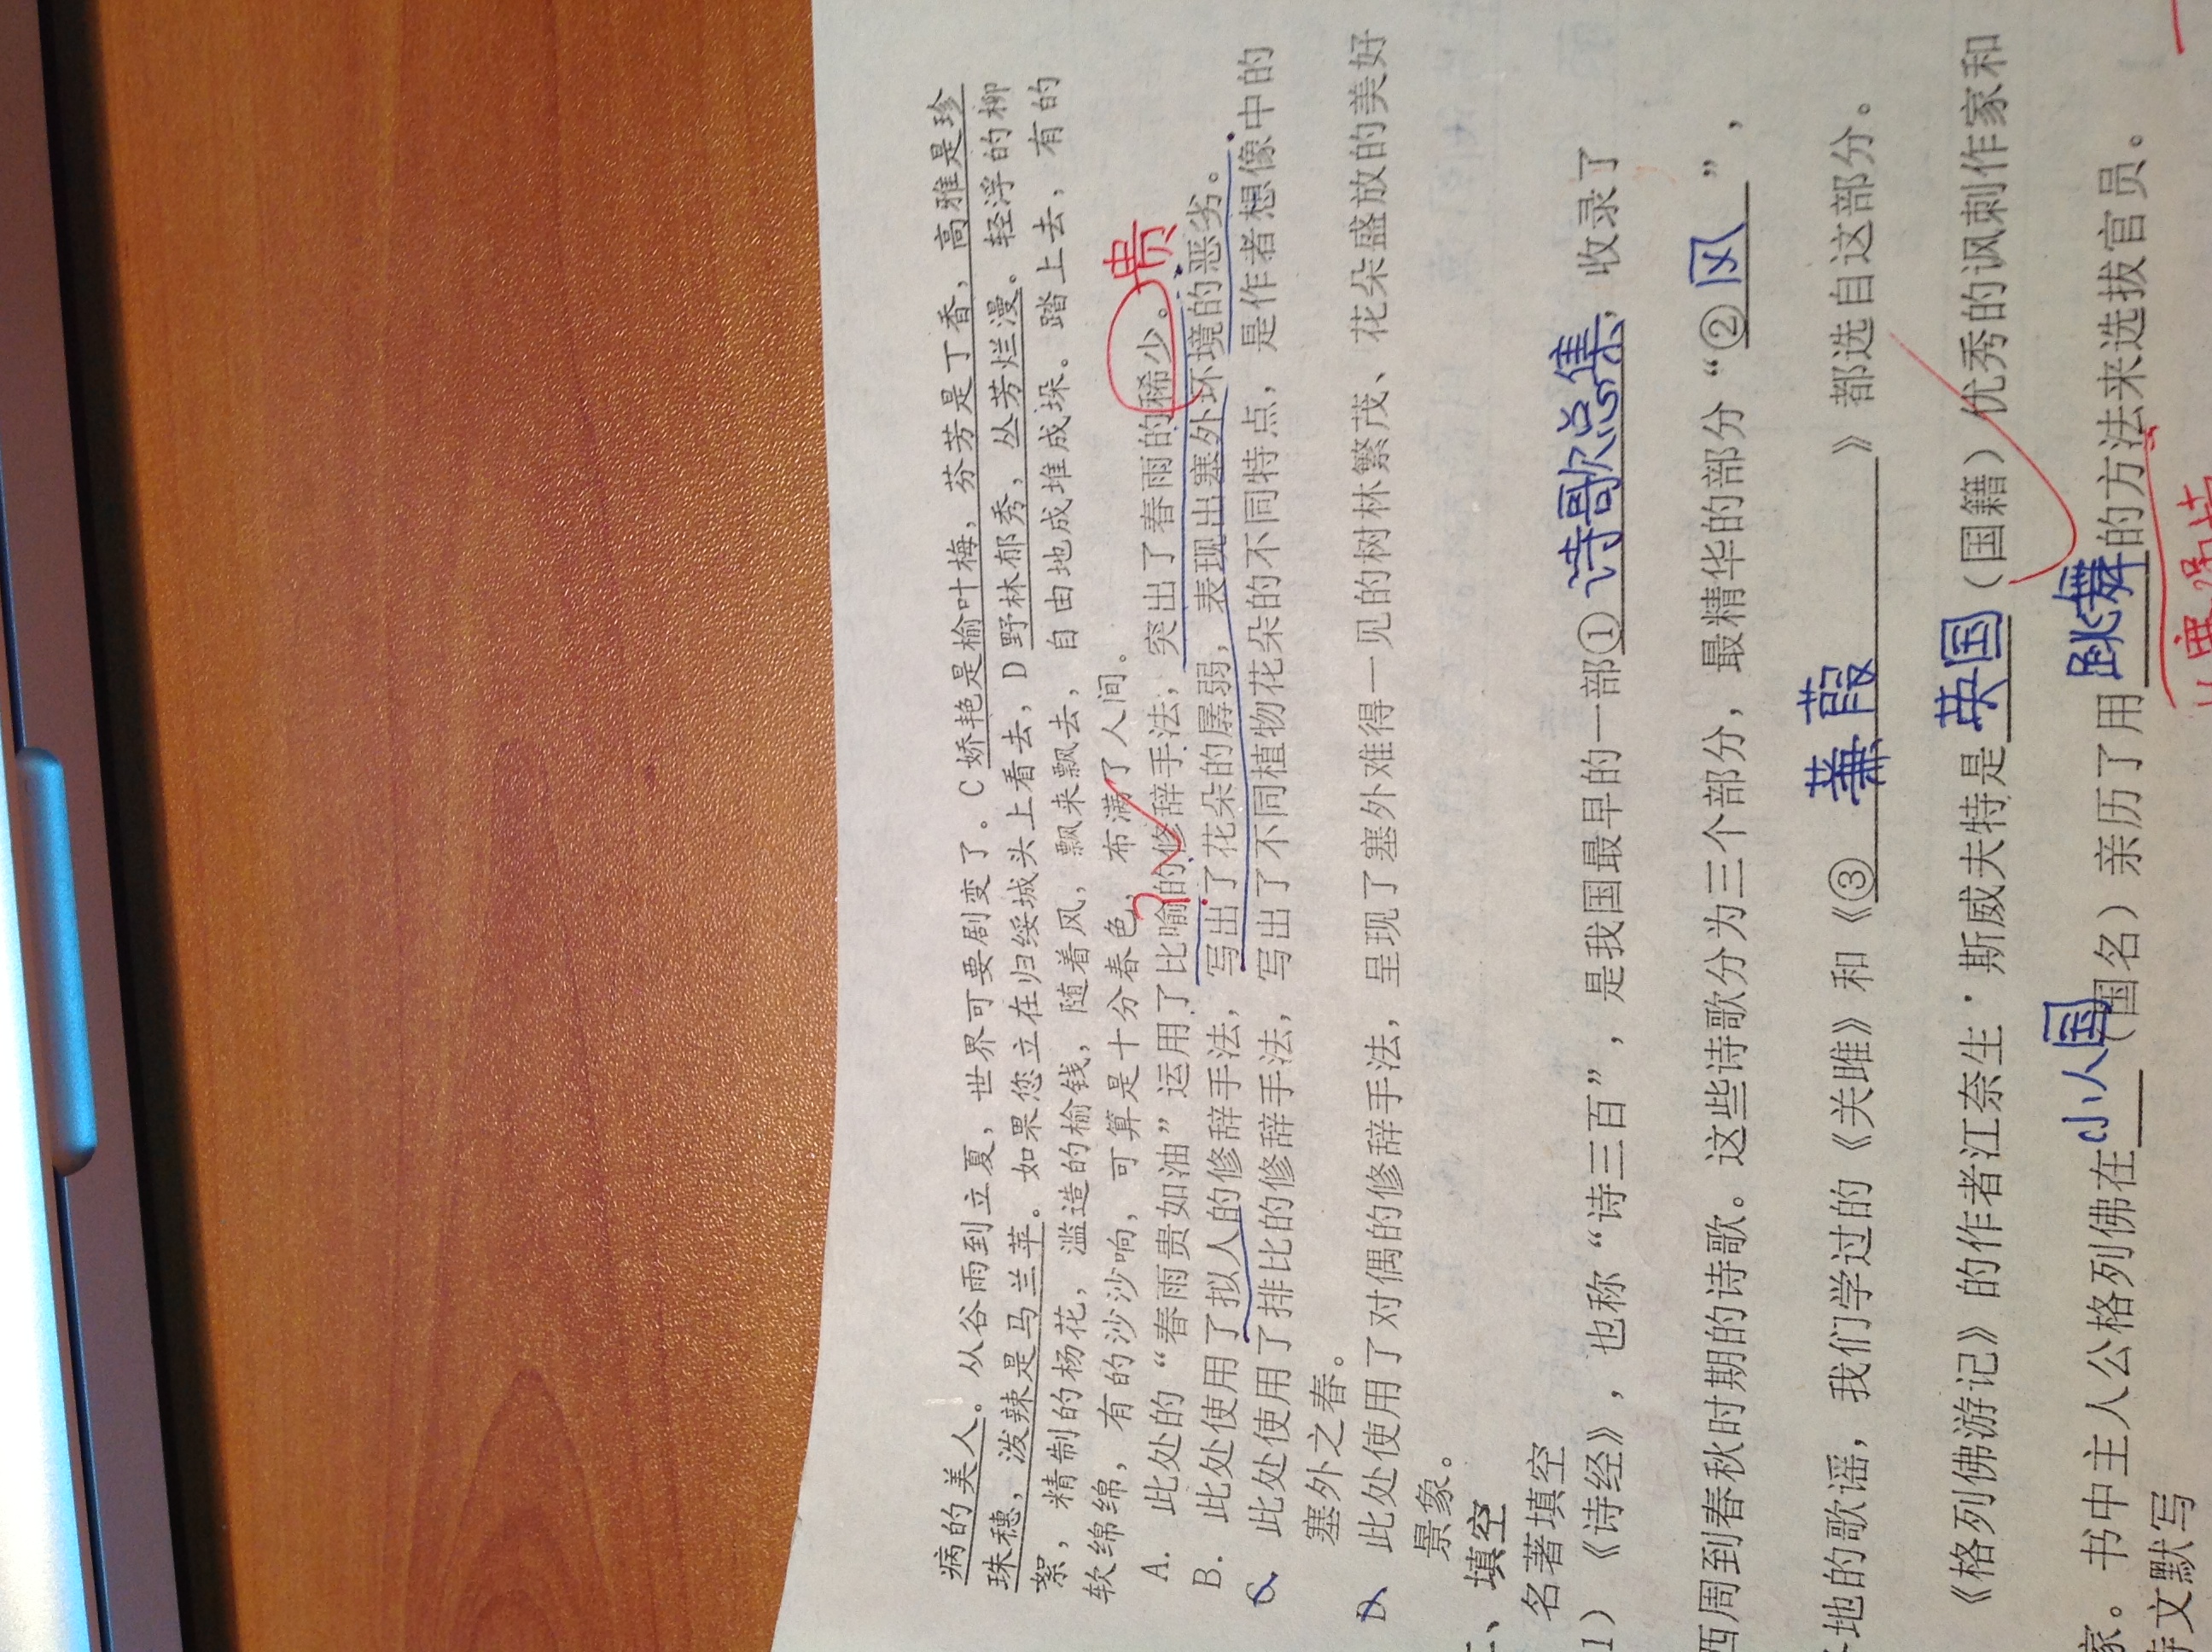 病的美人。从谷雨到立夏，世界可要剧变了。C 娇艳是榆叶梅，芬芳是丁香，高雅是珍
珠穗，泼辣是马兰苹。如果您立在归绥城头上看去，D 野林郁秀，丛芳烂漫。轻浮的柳
絮，精制的杨花，滥造的榆钱，随着风，飘来飘去，自由地成堆成垛。踏上去，有的
软绵绵，有的沙沙响，可算是十分春色，布满了人间。
A. 此处的“春雨贵如油”运用了比喻的修辞手法，突出了春雨的稀少。贵
?
B. 此处使用了拟人的修辞手法，写出了花朵的孱弱，表现出塞外环境的恶劣。
C. 此处使用了排比的修辞手法，写出了不同植物花朵的不同特点，是作者想像中的
塞外之春。
D. 此处使用了对偶的修辞手法，呈现了塞外难得一见的树林繁茂、花朵盛放的美好
景象。
、填空
名著填空
1）《诗经》，也称“诗三百”，是我国最早的一部①诗歌总集，收录了
西周到春秋时期的诗歌。这些诗歌分为三个部分，最精华的部分“②风”，
地的歌谣，我们学过的《关雎》和《③蒹葭》都选自这部分。
《格列佛游记》的作者江奈生·斯威夫特是英国（国籍）优秀的讽刺作家和
家。书中主人公格列佛在小人国（国名）亲历了用跳舞的方法来选拔官员。
诗文默写